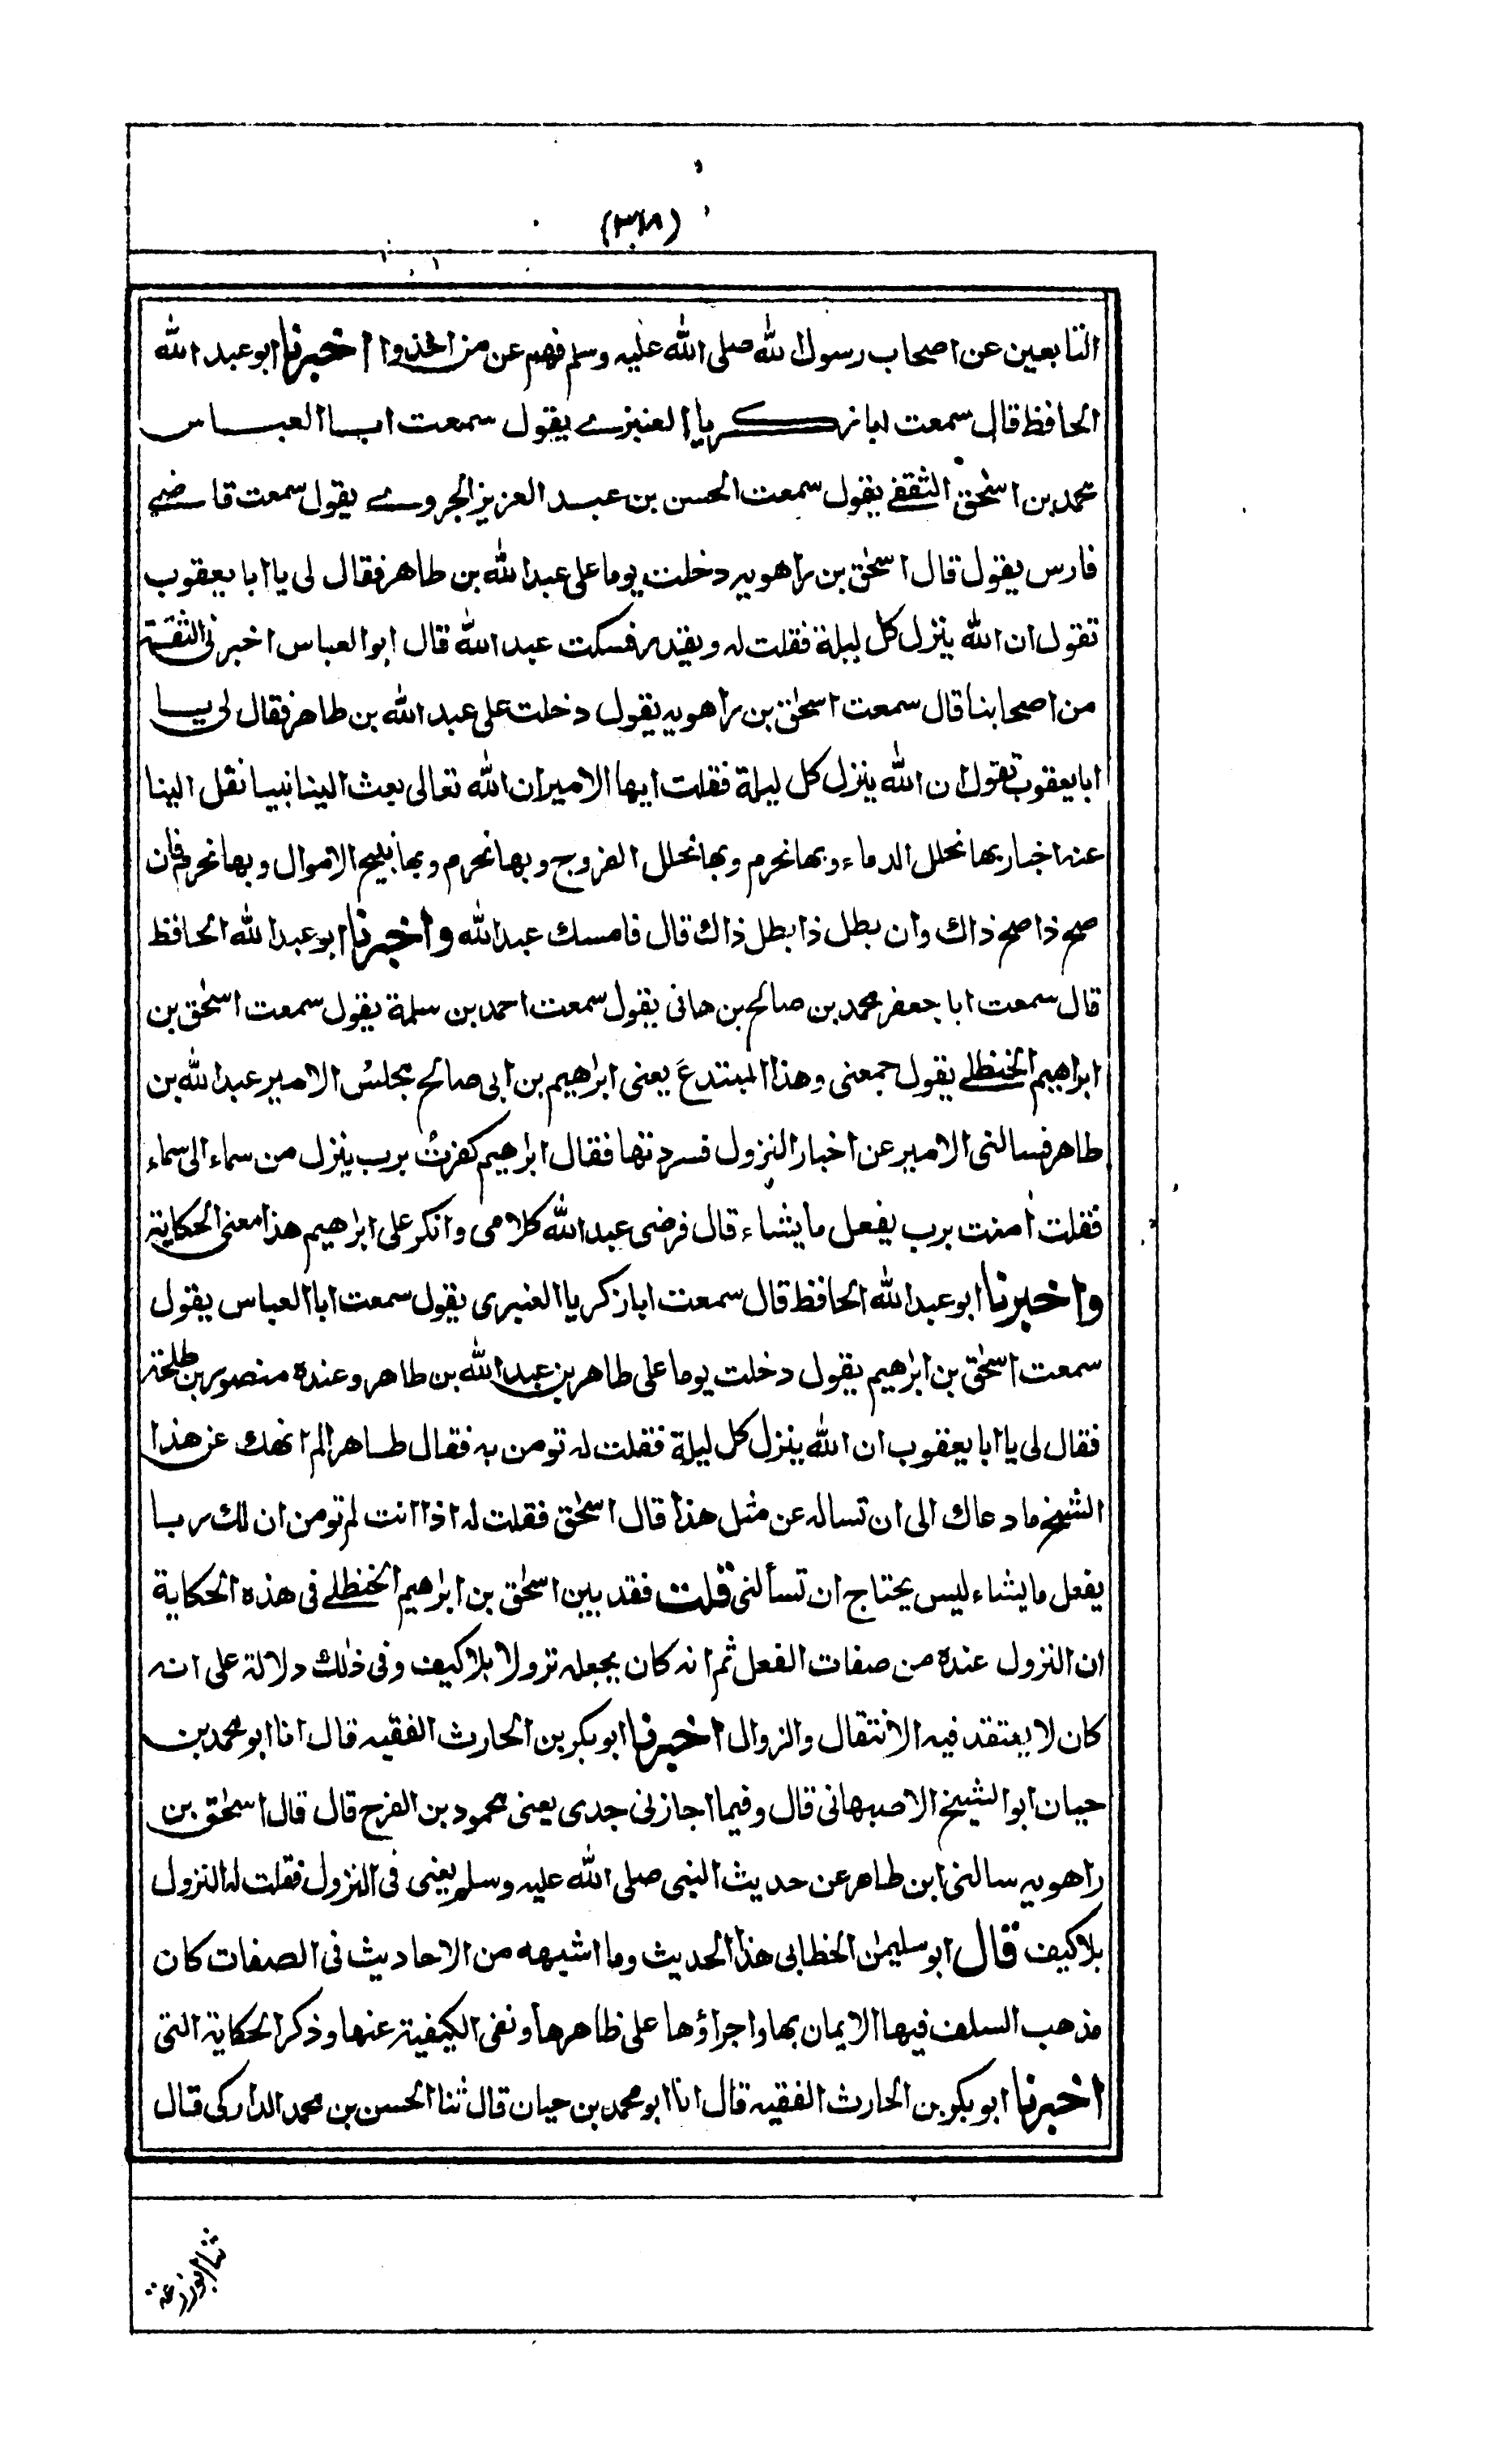 (٣١٨)
التابعين عن اصحاب رسول الله صلى الله عليه وسلم فهم عن من اخذوا اخبرنا ابو عبد الله
الحافظ قال سمعت ابا زكريا العنبرى يقول سمعت ابا العباس
محمد بن اسحٰق الثقفے يقول سمعت الحسن بن عبد العزيز الجروے يقول سمعت قاضے
فارس يقول قال اسحٰق بن راهويه دخلت يوما على عبد الله بن طاهر فقال لى يا ابا يعقوب
تقول ان الله ينزل كل ليلة فقلت له ويقدر فسكت عبد الله قال ابو العباس اخبرنى الثقة
من اصحابنا قال سمعت اسحٰق بن راهويه يقول دخلت على عبد الله بن طاهر فقال لى يا
ابا يعقوب تقول ان الله ينزل كل ليلة فقلت ايها الامير ان الله تعالى بعث الينا نبيا نقل الينا
عنه اخبار بها نحلل الدماء وبها نحرم وبها نحلل الفروج وبها نحرم وبها نبيح الاموال وبها نحرم فان
صح ذا صح ذاك وان بطل ذا بطل ذاك قال فامسك عبد الله واخبرنا ابو عبد الله الحافظ
قال سمعت ابا جعفر محمد بن صالح بن هانى يقول سمعت احمد بن سلمة يقول سمعت اسحٰق بن
ابراهيم الحنظلے يقول جمعنى وهذا المبتدع يعنى ابراهيم بن ابى صالح مجلس الامير عبد الله بن
طاهر فسالنى الامير عن اخبار النزول فسردتها فقال ابراهيم كفرت برب ينزل من سماء الى سماء
فقلت اٰمنت برب يفعل ما يشاء قال فرضى عبد الله كلامى وانكر على ابراهيم هذا معنى الحكاية
واخبرنا ابو عبد الله الحافظ قال سمعت ابا زكريا العنبرى يقول سمعت ابا العباس يقول
سمعت اسحٰق بن ابراهيم يقول دخلت يوما على طاهر بن عبد الله بن طاهر وعنده منصور بن طلحة
فقال لى يا ابا يعقوب ان الله ينزل كل ليلة فقلت له تومن به فقال طاهر الم انهك عن هذا
الشيخ ما دعاك الى ان تساله عن مثل هذا قال اسحٰق فقلت له اذا انت لم تومن ان لك ربا
يفعل ما يشاء ليس يحتاج ان تسألنى قلت فقد بين اسحٰق بن ابراهيم الحنظلے فى هذه الحكاية
ان النزول عنده من صفات الفعل ثم انه كان يجعله نزولا بلا كيف وفى ذلك دلالة على انه
كان لا يعتقد فيه الانتقال والزوال اخبرنا ابو بكر بن الحارث الفقيه قال انا ابو محمد بن
حيان ابو الشيخ الاصبهانى قال وفيما اجازنى جدى يعنى محمود بن الفرج قال قال اسحٰق بن
راهويه سالنى ابن طاهر عن حديث النبى صلى الله عليه وسلم يعنى فى النزول فقلت له النزول
بلا كيف قال ابو سليمٰن الخطابى هذا الحديث وما اشبهه من الاحاديث فى الصفات كان
مذهب السلف فيها الايمان بها واجراؤها على ظاهرها ونفى الكيفية عنها وذكر الحكاية التى
اخبرنا ابو بكر بن الحارث الفقيه قال انا ابو محمد بن حيان قال ثنا الحسن بن محمد الداركى قال
ثنا ابو زرعة